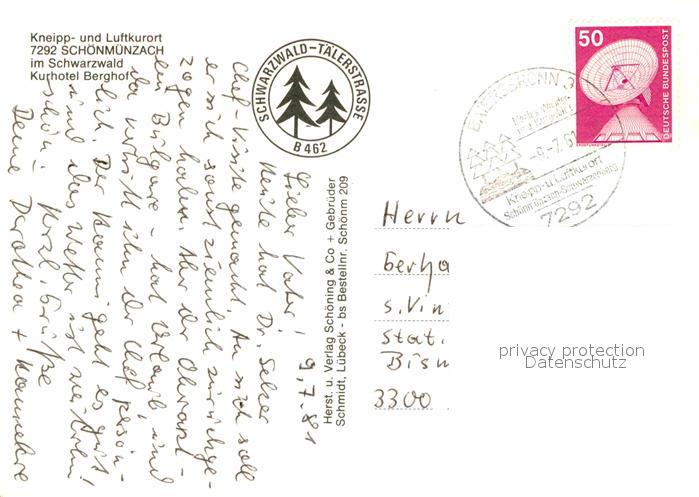 Kneipp- und Luftkurort
7292 SCHÖNMÜNZACH
im Schwarzwald
Kurhotel Berghof
SCHWARZWALD-TÄLERSTRASSE
B 462
50
DEUTSCHE BUNDESPOST
BAIERSBRONN 3
-9.-7.81
Kneipp-u Luftkurort
Schönmünzach-Schwarzenberg
7292
Herst. u. Verlag Schöning & Co + Gebrüder
Schmidt, Lübeck - bs Bestellnr. Schönm 209
9.7.81
Lieber Vater!
Heute hat Dr. Selzer
Chef-Visite gemacht. An sich soll
er sich sonst ziemlich zurückge-
zogen haben. Aber der Oberarzt -
ein Bulgare - hat Urlaub, und
da vertritt ihn der Chef persön-
lich. Der Mammi geht es gut!
und das Wetter ist weiterhin
schön. Herzl. Grüße
Deine Dorothea + Hannelore
Herrn
Gerha
s. Vin
Stat.
Bism
3300
privacy protection
Datenschutz